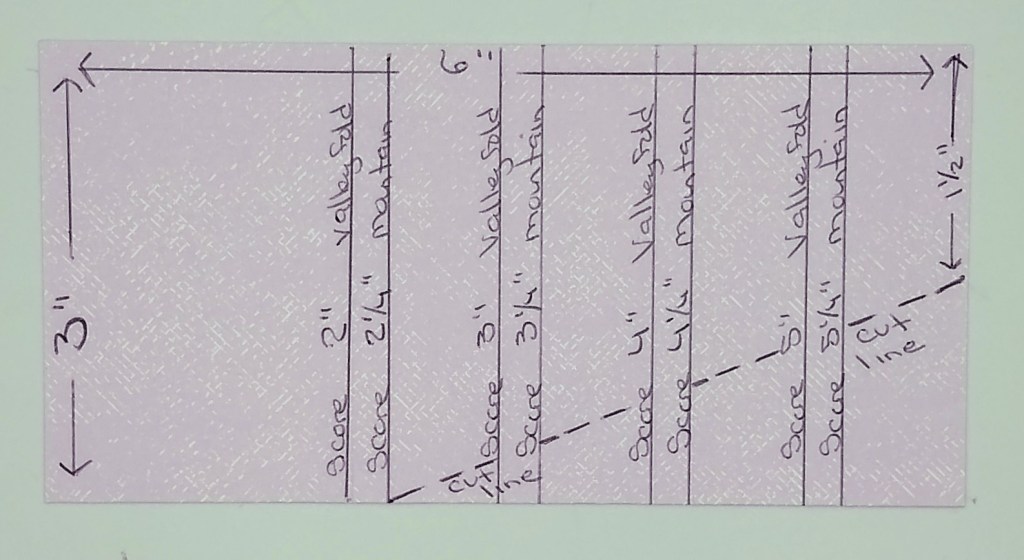 6"
3"
Score 2" valley fold
Score 2¼" mountain
Score 3" valley fold
Score 3¼" mountain
Score 4" valley fold
Score 4¼" mountain
Score 5" valley fold
Score 5¼" mountain
1½"
cut
line
cut
line